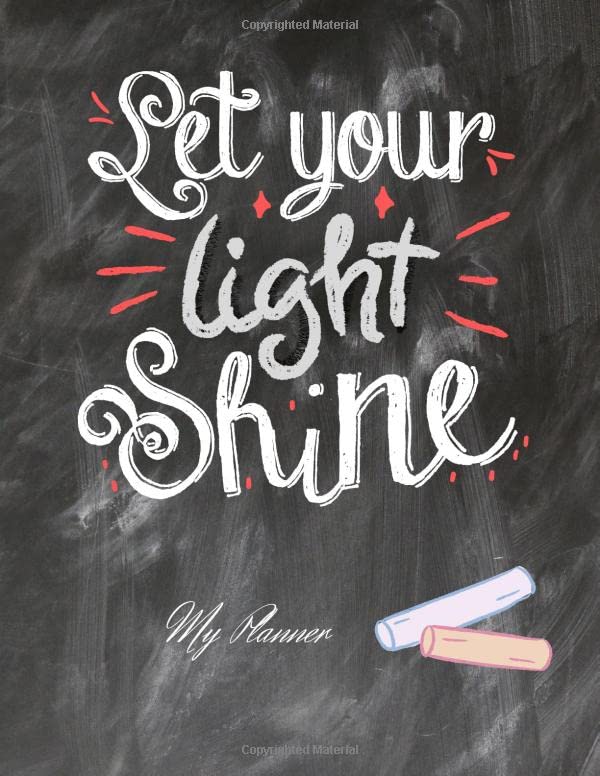 Copyrighted Material
Let your
light
Shine
My Planner
Copyrighted Material